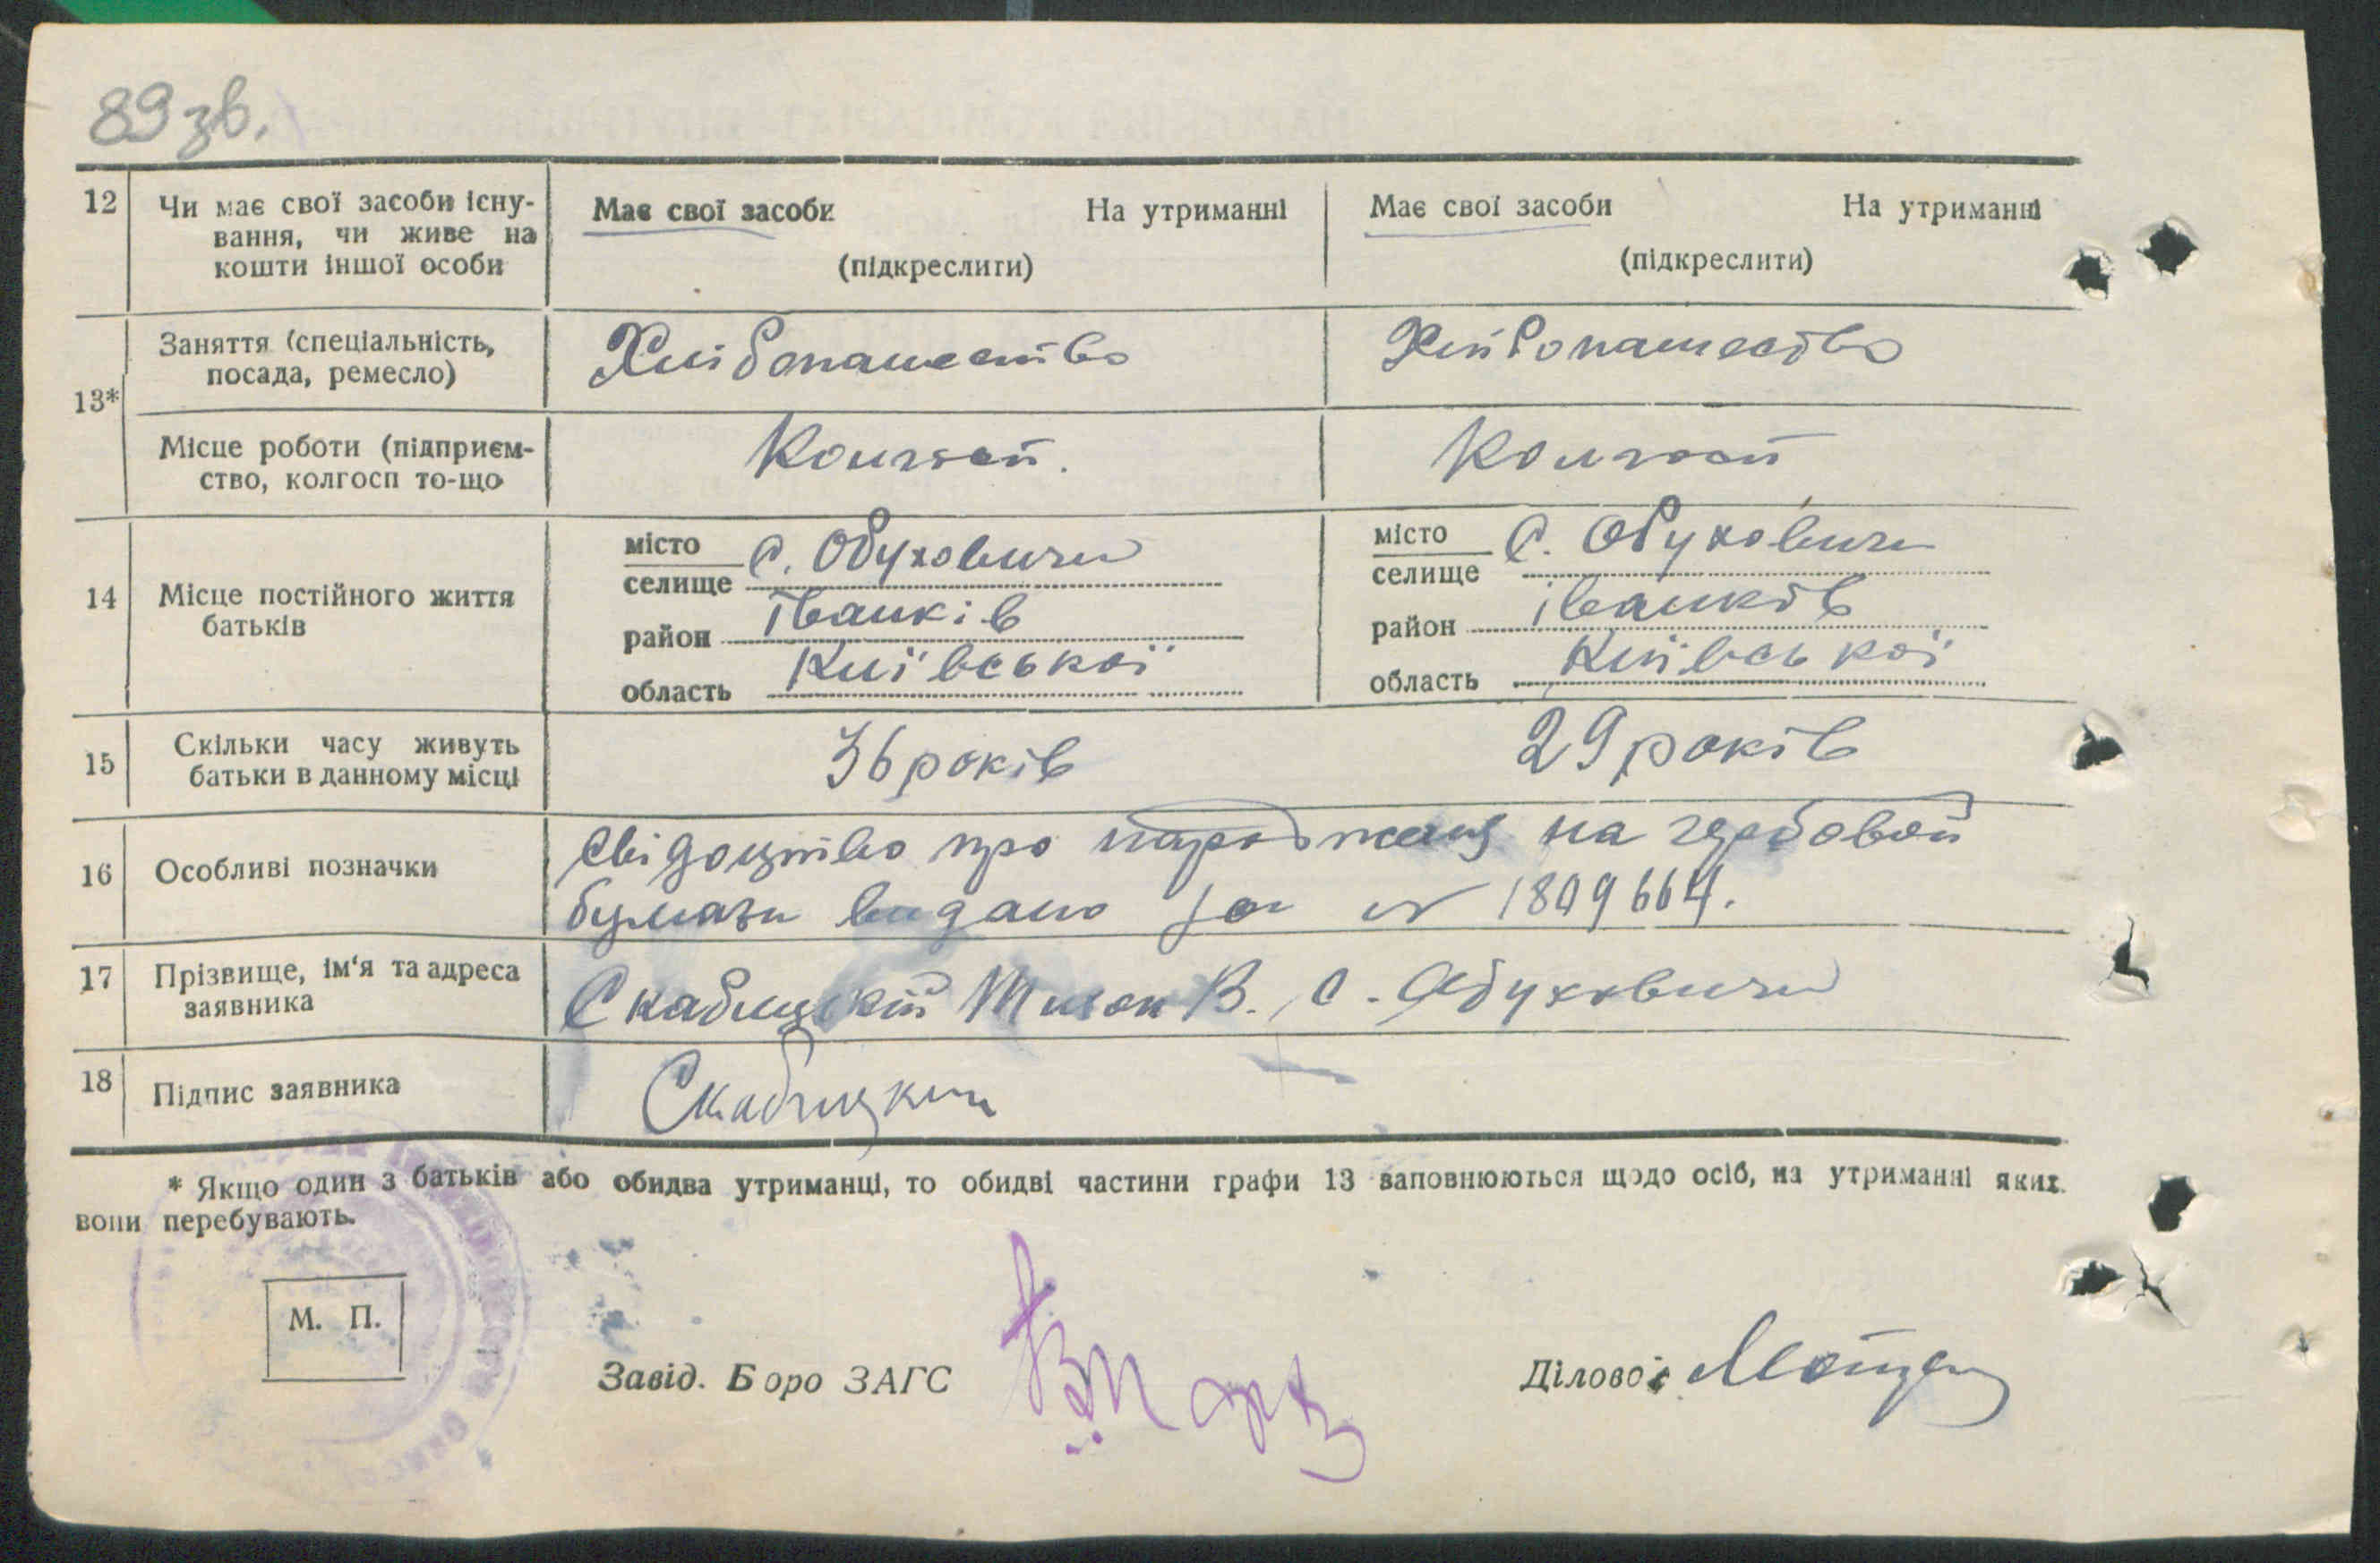 89 зв.
12 Чи має свої засоби існу-
вання, чи живе на
кошти іншої особи
Має свої засоби На утриманні
(підкреслиги)
Має свої засоби На утриманні
(підкреслити)
13*
Заняття (спеціальність,
посада, ремесло)
Хлібопашество
Хлібопашество
Місце роботи (підприєм-
ство, колгосп то-що
Колгосп.
Колгосп
14 Місце постійного життя
батьків
місто
селище
с. Обуховичи
район Іванків
область Київської
місто
селище
с. Обуховичи
район Іванків
область Київської
15 Скільки часу живуть
батьки в данному місці
36 років
29 років
16 Особливі позначки
Свідоцтво про народження на гербовой
бумази видано за № 1809664.
17 Прізвище, ім'я та адреса
заявника
Скабицькій В. с. Обуховичи
18 Підпис заявника
* Якщо один з батьків або обидва утриманці, то обидві частини графи 13 заповнюються щодо осіб, на утриманні яких
вони перебувають.
М. П.
Завід. Боро ЗАГС
Діловод